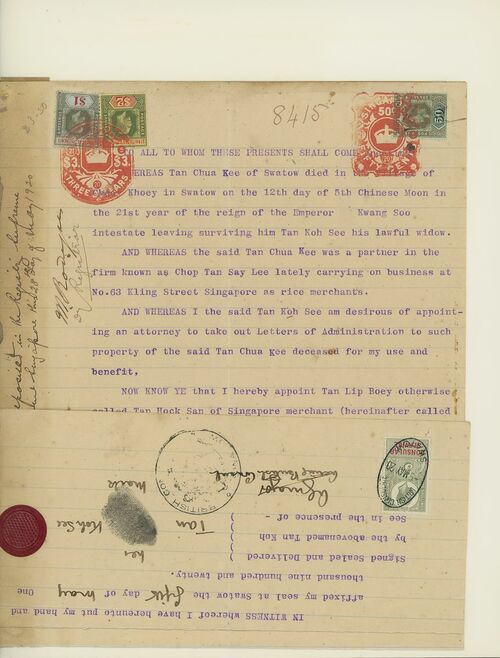 8415
$1
$2
50
SINGAPORE
50
$3. $3.
THREE DOLLARS
TO ALL TO WHOM THESE PRESENTS SHALL COME
WHEREAS Tan Chua Kee of Swatow died in the of
Khoey in Swatow on the 12th day of 5th Chinese Moon in
the 21st year of the reign of the Emperor Kwang Soo
intestate leaving surviving him Tan Koh See his lawful widow.
AND WHEREAS the said Tan Chua Kee was a partner in the
firm known as Chop Tan Say Lee lately carrying on business at
No.63 Kling Street Singapore as rice merchants.
AND WHEREAS I the said Tan Koh See am desirous of appoint-
ing an attorney to take out Letters of Administration to such
property of the said Tan Chua Kee deceased for my use and
benefit,
NOW KNOW YE that I hereby appoint Tan Lip Boey otherwise
called Tan Hock San of Singapore merchant (hereinafter called
Registrar
IN WITNESS whereof I have hereunto put my hand and
affixed my seal at Swatow the fifth day of May One
thousand nine hundred and twenty.
Signed Sealed and Delivered )
by the abovenamed Tan Koh )
See in the presence of - )
her
Tan Koh See
mark
CONSULAR
BRITISH